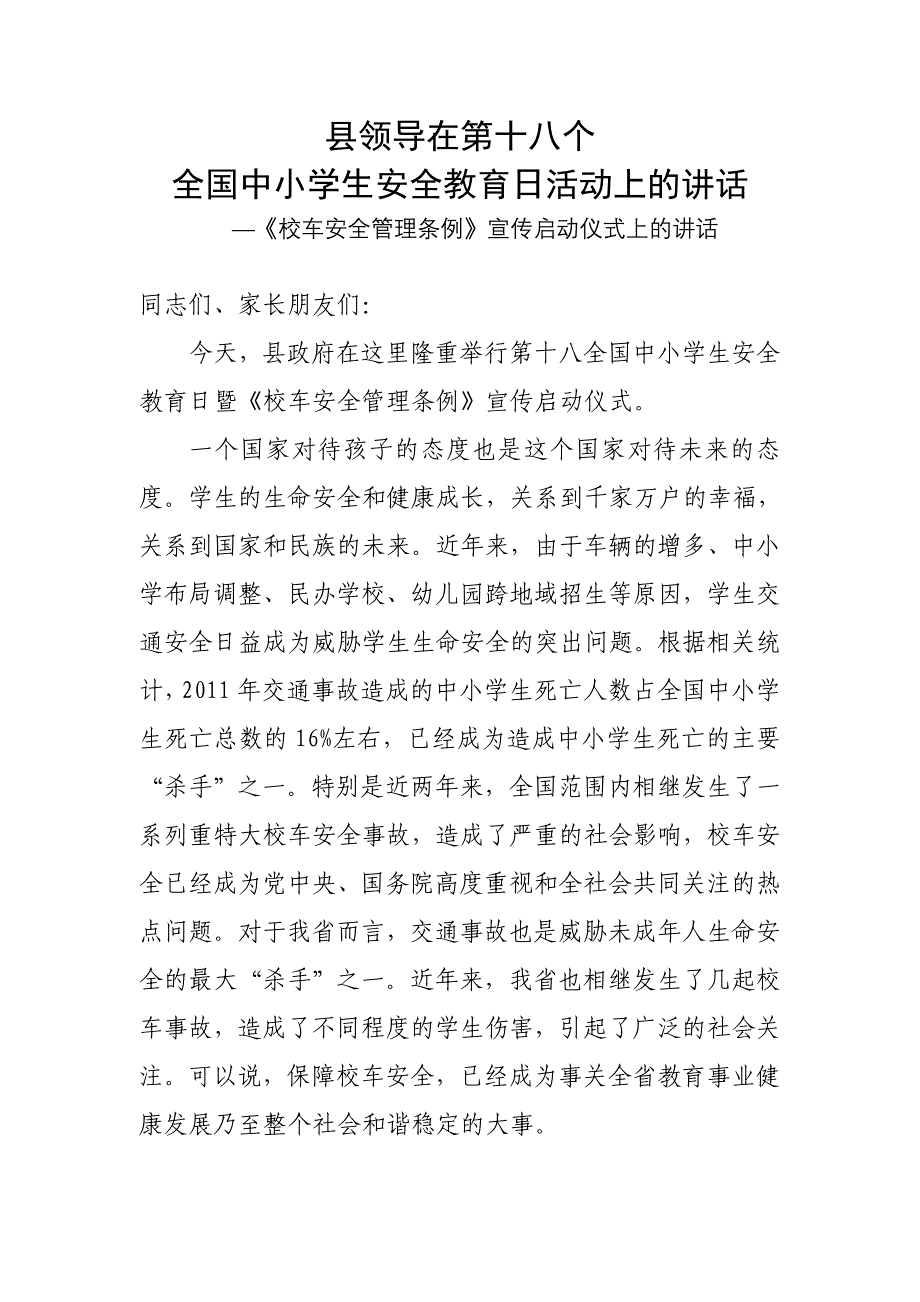 县领导在第十八个
全国中小学生安全教育日活动上的讲话
—《校车安全管理条例》宣传启动仪式上的讲话
同志们、家长朋友们：
今天，县政府在这里隆重举行第十八全国中小学生安全
教育日暨《校车安全管理条例》宣传启动仪式。
一个国家对待孩子的态度也是这个国家对待未来的态
度。学生的生命安全和健康成长，关系到千家万户的幸福，
关系到国家和民族的未来。近年来，由于车辆的增多、中小
学布局调整、民办学校、幼儿园跨地域招生等原因，学生交
通安全日益成为威胁学生生命安全的突出问题。根据相关统
计，2011年交通事故造成的中小学生死亡人数占全国中小学
生死亡总数的16%左右，已经成为造成中小学生死亡的主要
“杀手”之一。特别是近两年来，全国范围内相继发生了一
系列重特大校车安全事故，造成了严重的社会影响，校车安
全已经成为党中央、国务院高度重视和全社会共同关注的热
点问题。对于我省而言，交通事故也是威胁未成年人生命安
全的最大“杀手”之一。近年来，我省也相继发生了几起校
车事故，造成了不同程度的学生伤害，引起了广泛的社会关
注。可以说，保障校车安全，已经成为事关全省教育事业健
康发展乃至整个社会和谐稳定的大事。